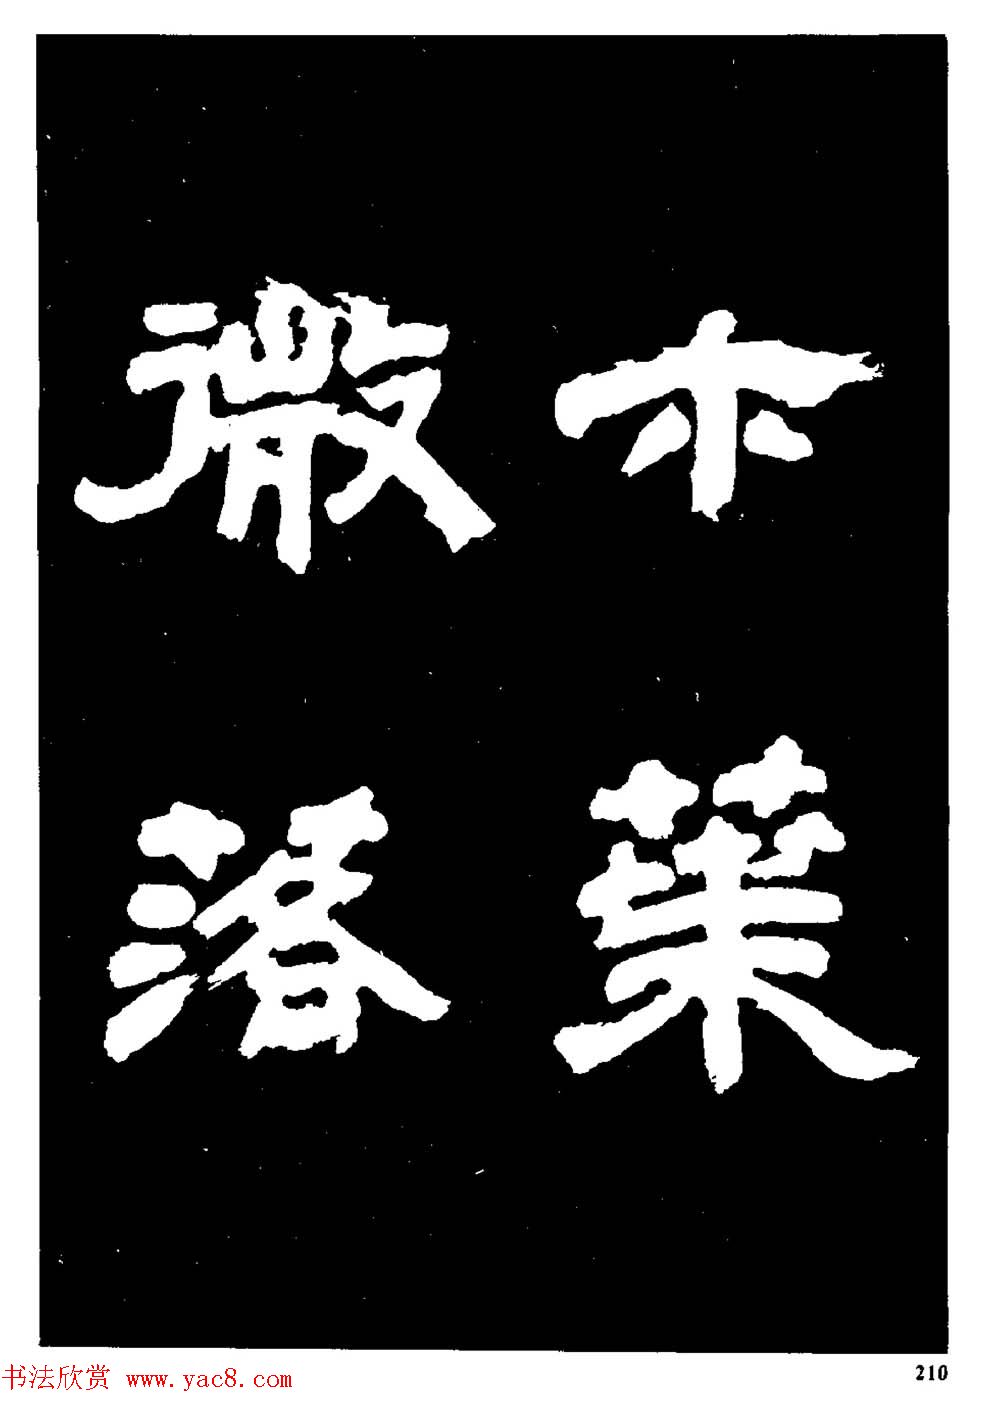 木葉
微落
书法欣赏 www.yac8.com
210